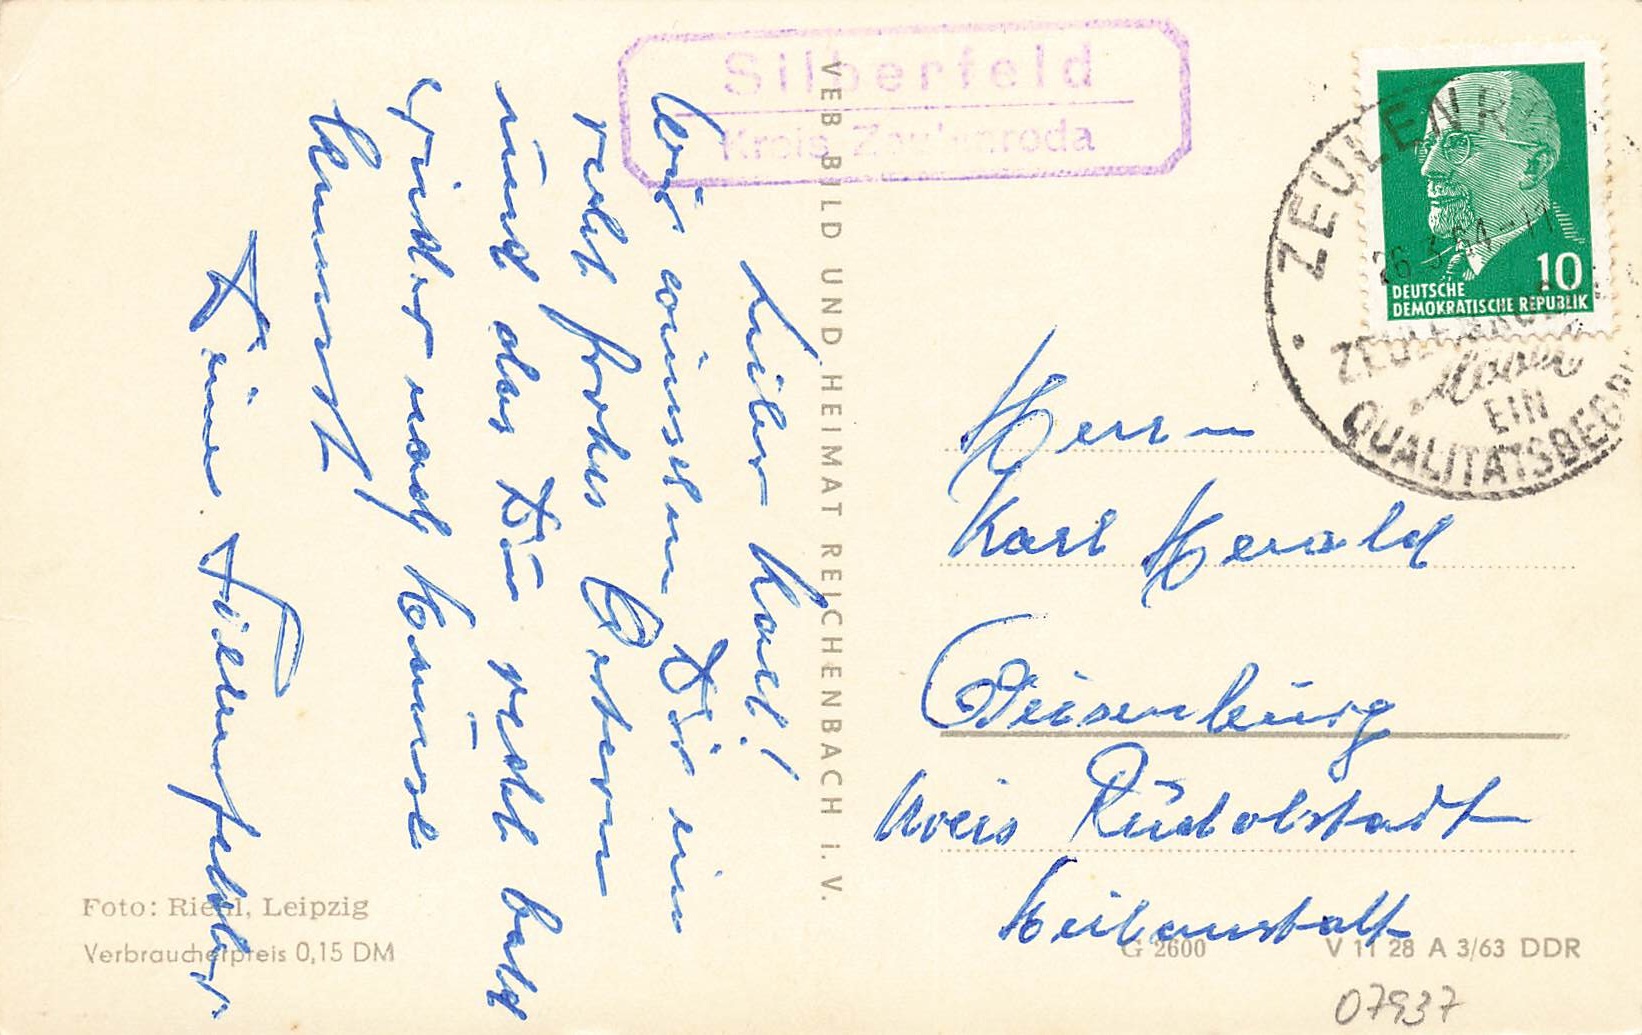 Silberfeld
Kreis Zeulenroda
Lieber Karl!
Wir wünschen Dir ein
recht frohes Ostern
und das Du recht bald
wieder nach Hause
kommst
Deine
VEB BILD UND HEIMAT REICHENBACH I. V.
Foto: Riehl, Leipzig
Verbraucherpreis 0,15 DM
ZEULENR
26.3.64-17
10
DEUTSCHE
DEMOKRATISCHE REPUBLIK
ZEULENRODA
EIN
QUALITÄTSBEGRI
Herrn
Karl Herold
Kreis Rudolstadt
Heilanstalt
G 2600
V 11 28 A 3/63 DDR
07937